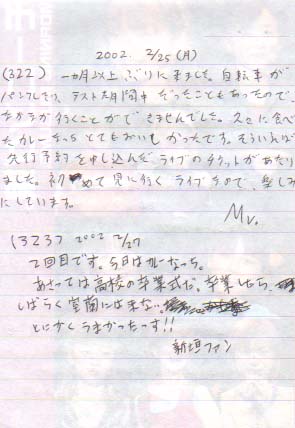 2002. 2/25 (月)
(322) 一ヵ月以上ぶりに来ました。自転車が
パンクしたり、テスト期間中だったこともあったので、
なかなか行くことができませんでした。久々に食べ
たカレーもっちとてもおいしかったです。そういえば
先行予約を申し込んだライブのチケットがあたり
ました。初めて見に行くライブなので、楽しみ
にしています。
Mr.
(323) 2002 2/27
2回目です。今日はカレーなっち。
あさっては高校の卒業式だ。卒業したら、
しばらく室蘭には来ない。
とにかくうまかったっす!!
新垣ファン